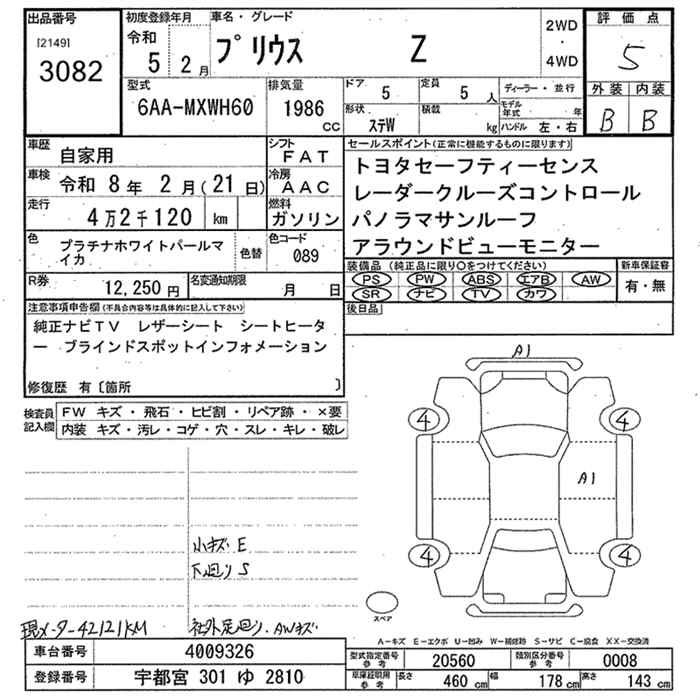 出品番号
[2149]
3082
初度登録年月
令和
5 2月
車名・グレード
プリウス Z
2WD
・
4WD
評価点
5
外装 内装
B B
型式
6AA-MXWH60
排気量
1986
CC
ドア
5
定員
5 人
形状
ステW
積載
kg
ディーラー・並行
モデル年式 年
ハンドル 左・右
車歴
自家用
シフト
FAT
車検
令和 8年 2月(21日)
冷房
AAC
走行
4万2千120 km
燃料
ガソリン
色
プラチナホワイトパールマイカ
色替
色コード
089
R券
12,250円
名変通知期限
月 日
セールスポイント(正常に機能するものに限ります)
トヨタセーフティーセンス
レーダークルーズコントロール
パノラマサンルーフ
アラウンドビューモニター
装備品(純正品に限り○をつけてください)
PS PW ABS エアB AW
SR ナビ TV カワ
新車保証書
有・無
後日品
注意事項申告欄(不具合内容等は具体的に記入して下さい)
純正ナビTV レザーシート シートヒーター ブラインドスポットインフォメーション
修復歴 有〔箇所 〕
検査員記入欄
FW キズ・飛石・ヒビ割・リペア跡・×要
内装 キズ・汚レ・コゲ・穴・スレ・キレ・破レ
A1
4
4
A1
4
4
小キズ E
下廻り S
現メーター42121KM
社外足廻り、AWキズ
スペア
A-キズ E-エクボ U-凹み W-補修跡 S-サビ C-腐食 XX-交換済
車台番号
4009326
登録番号
宇都宮 301 ゆ 2810
型式指定番号
参考
20560
類別区分番号
参考
0008
車庫証明用
参考
長さ
460 cm
幅
178 cm
高さ
143 cm